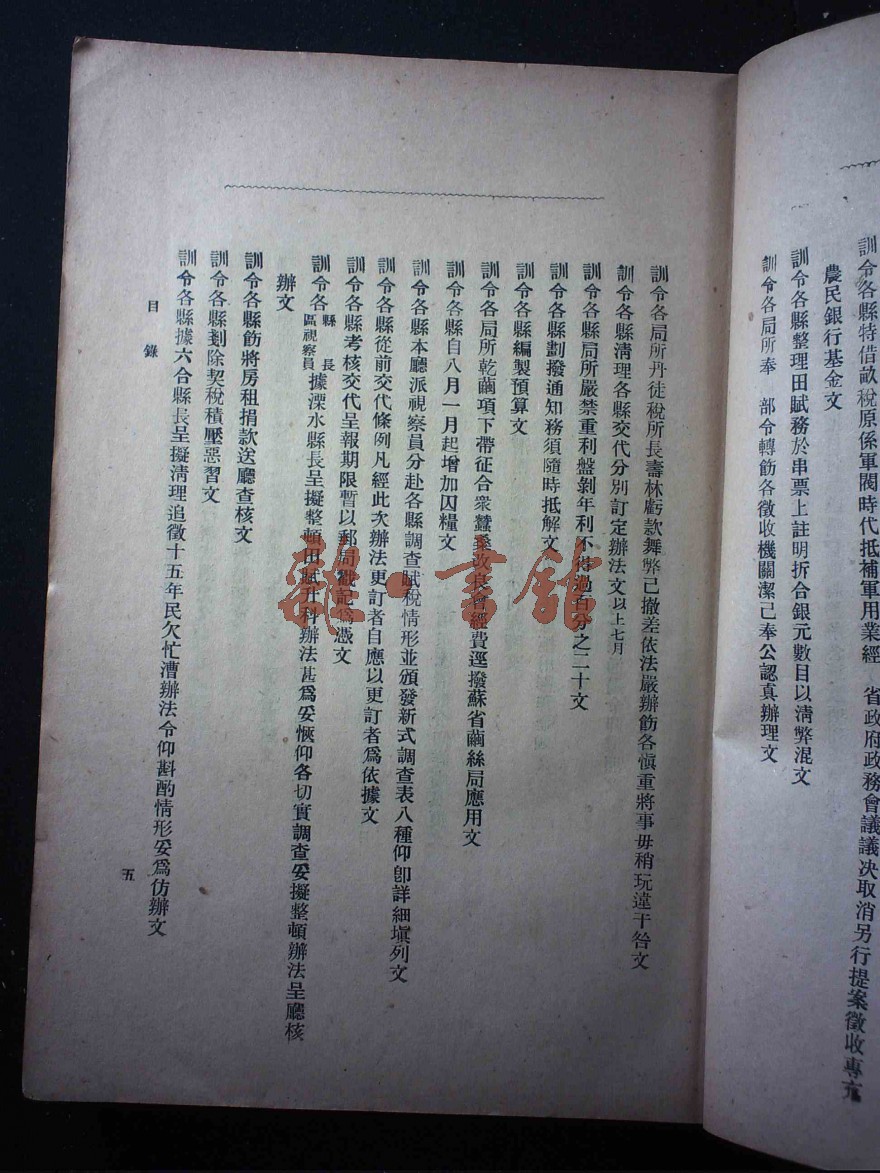 訓令各縣特借畝稅原係軍閥時代抵補軍用業經　省政府政務會議議决取消另行提案徵收專充
農民銀行基金文
訓令各縣整理田賦務於串票上註明拆合銀元數目以淸弊混文
訓令各局所奉　部令轉飭各徵收機關潔己奉公認真辦理文
訓令各局所丹徒稅所長壽林虧款舞弊已撤差依法嚴辦飭各愼重將事毋稍玩違干咎文
訓令各縣淸理各縣交代分別訂定辦法文以上七月
訓令各縣局所嚴禁重利盤剝年利不得過百分之二十文
訓令各縣劃撥通知務須隨時抵解文
訓令各縣編製預算文
訓令各局所乾繭項下帶征合衆蠶桑改良會經費逕撥蘇省繭絲局應用文
訓令各縣自八月一月起增加囚糧文
訓令各縣本廳派視察員分赴各縣調查賦稅情形並頒發新式調查表八種仰卽詳細塡列文
訓令各縣從前交代條例凡經此次辦法更訂者自應以更訂者爲依據文
訓令各縣考核交代呈報期限暫以郵局戳記爲憑文
訓令各縣長區視察員據溧水縣長呈擬整頓田賦升科辦法甚爲妥愜仰各切實調查妥擬整頓辦法呈廳核
辦文
訓令各縣飭將房租捐款送廳查核文
訓令各縣剗除契稅積壓惡習文
訓令各縣據六合縣長呈擬淸理追徵十五年民欠忙漕辦法令仰斟酌情形妥爲仿辦文
目錄
五